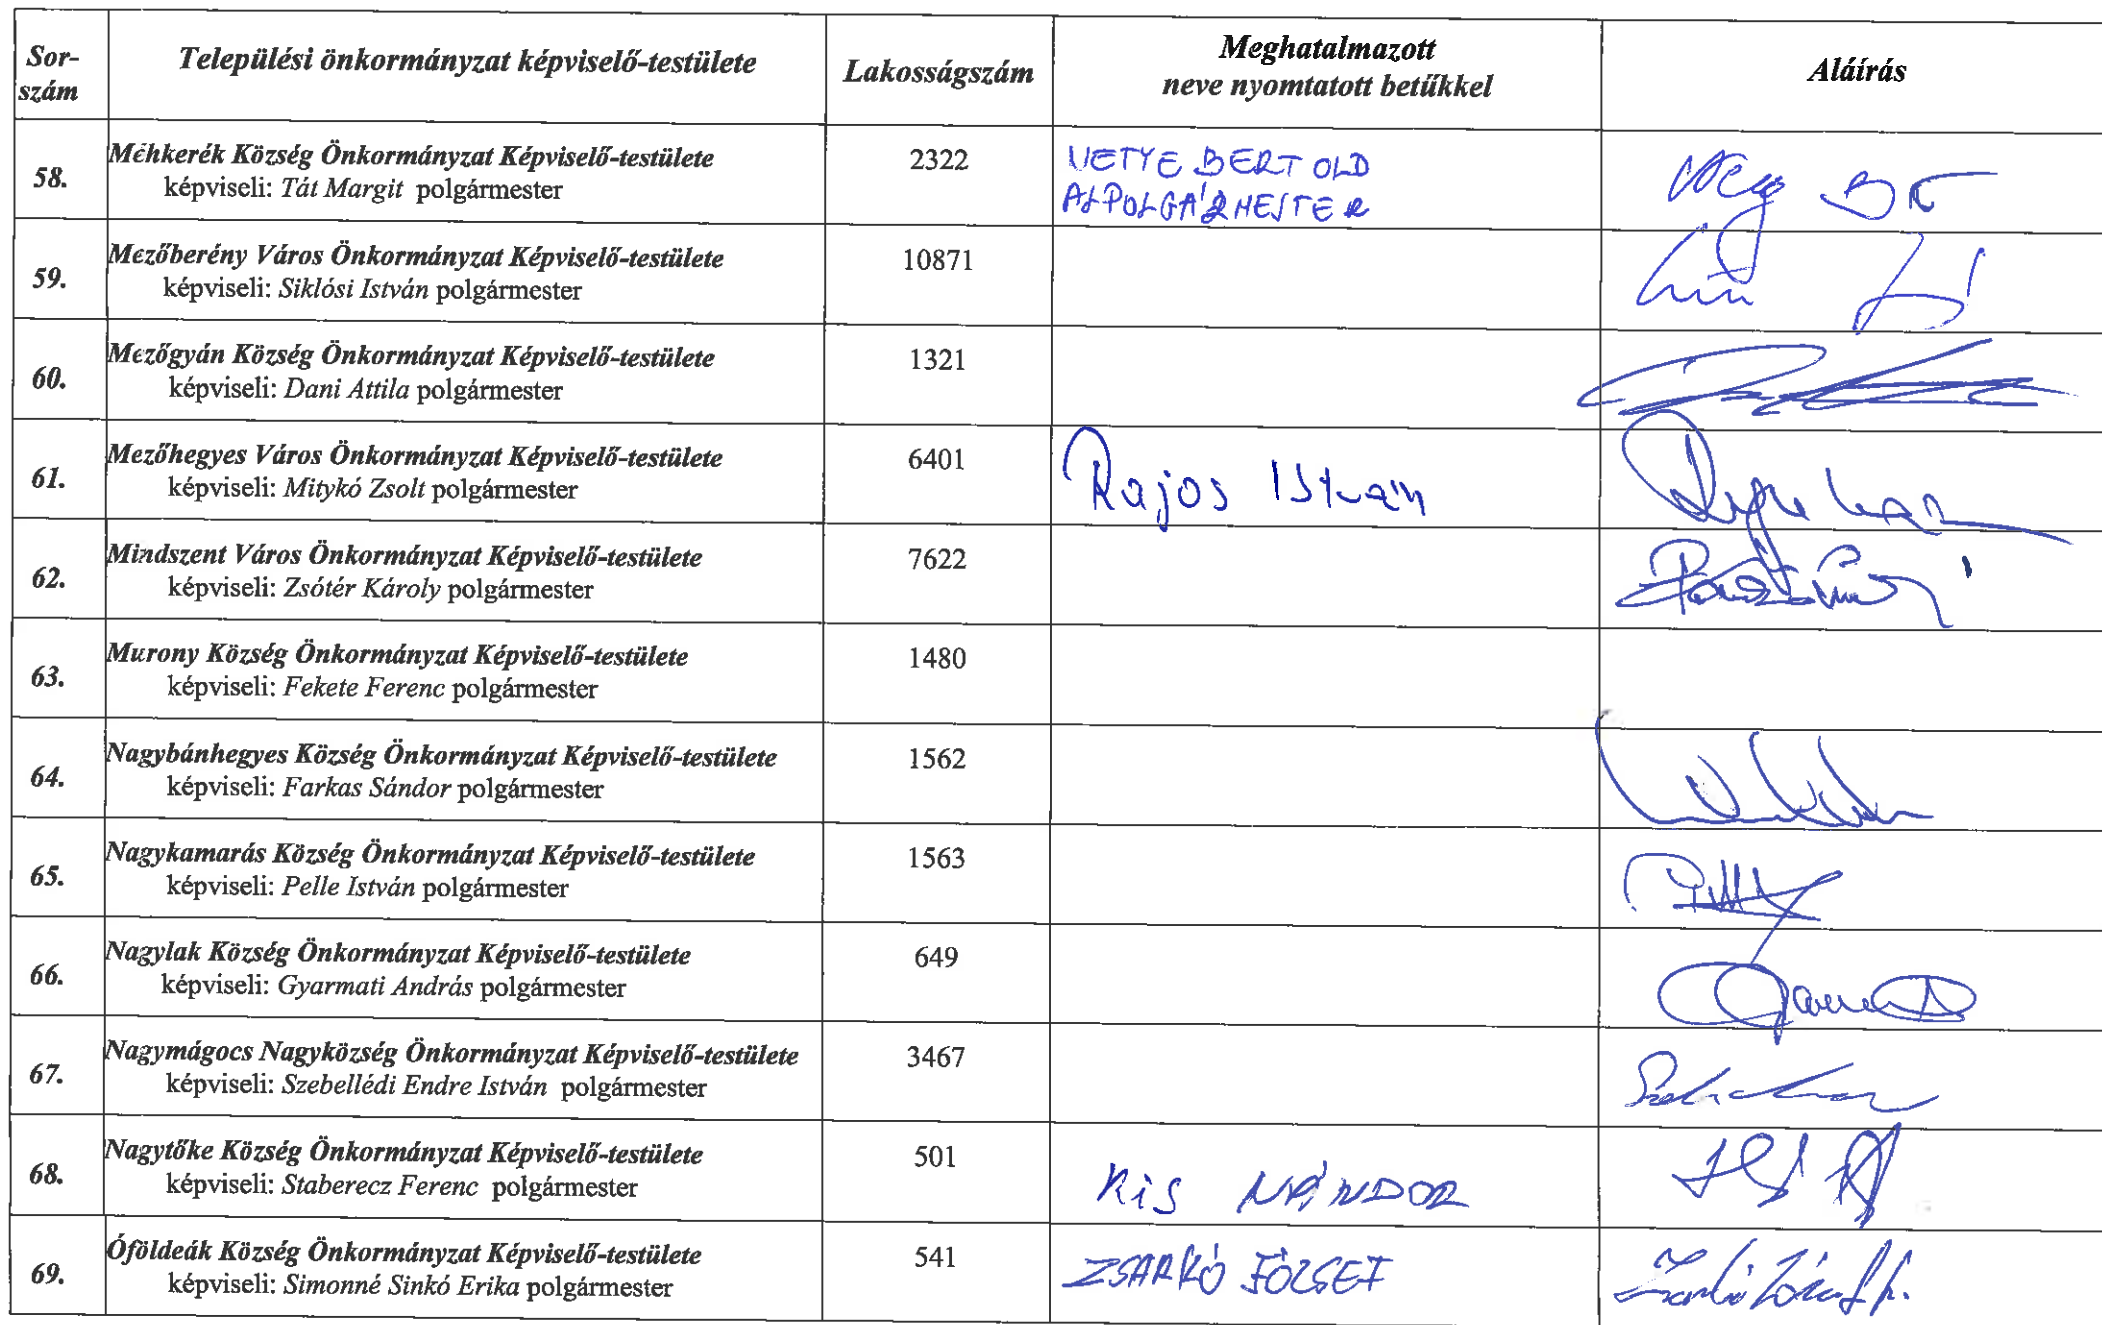 Sor- Települési önkormányzat képviselő-testülete Lakosságszám Meghatalmazott Aláírás
szám neve nyomtatott betűkkel
58. Méhkerék Község Önkormányzat Képviselő-testülete 2322 VETYE BERTOLD
képviseli: Tát Margit polgármester ALPOLGÁRMESTER
59. Mezőberény Város Önkormányzat Képviselő-testülete 10871
képviseli: Siklósi István polgármester
60. Mezőgyán Község Önkormányzat Képviselő-testülete 1321
képviseli: Dani Attila polgármester
61. Mezőhegyes Város Önkormányzat Képviselő-testülete 6401 Rajos István
képviseli: Mitykó Zsolt polgármester
62. Mindszent Város Önkormányzat Képviselő-testülete 7622
képviseli: Zsótér Károly polgármester
63. Murony Község Önkormányzat Képviselő-testülete 1480
képviseli: Fekete Ferenc polgármester
64. Nagybánhegyes Község Önkormányzat Képviselő-testülete 1562
képviseli: Farkas Sándor polgármester
65. Nagykamarás Község Önkormányzat Képviselő-testülete 1563
képviseli: Pelle István polgármester
66. Nagylak Község Önkormányzat Képviselő-testülete 649
képviseli: Gyarmati András polgármester
67. Nagymágocs Nagyközség Önkormányzat Képviselő-testülete 3467
képviseli: Szebellédi Endre István polgármester
68. Nagytőke Község Önkormányzat Képviselő-testülete 501 Kis NÁNDOR
képviseli: Staberecz Ferenc polgármester
69. Óföldeák Község Önkormányzat Képviselő-testülete 541 ZSARKÓ JÓZSEF
képviseli: Simonné Sinkó Erika polgármester